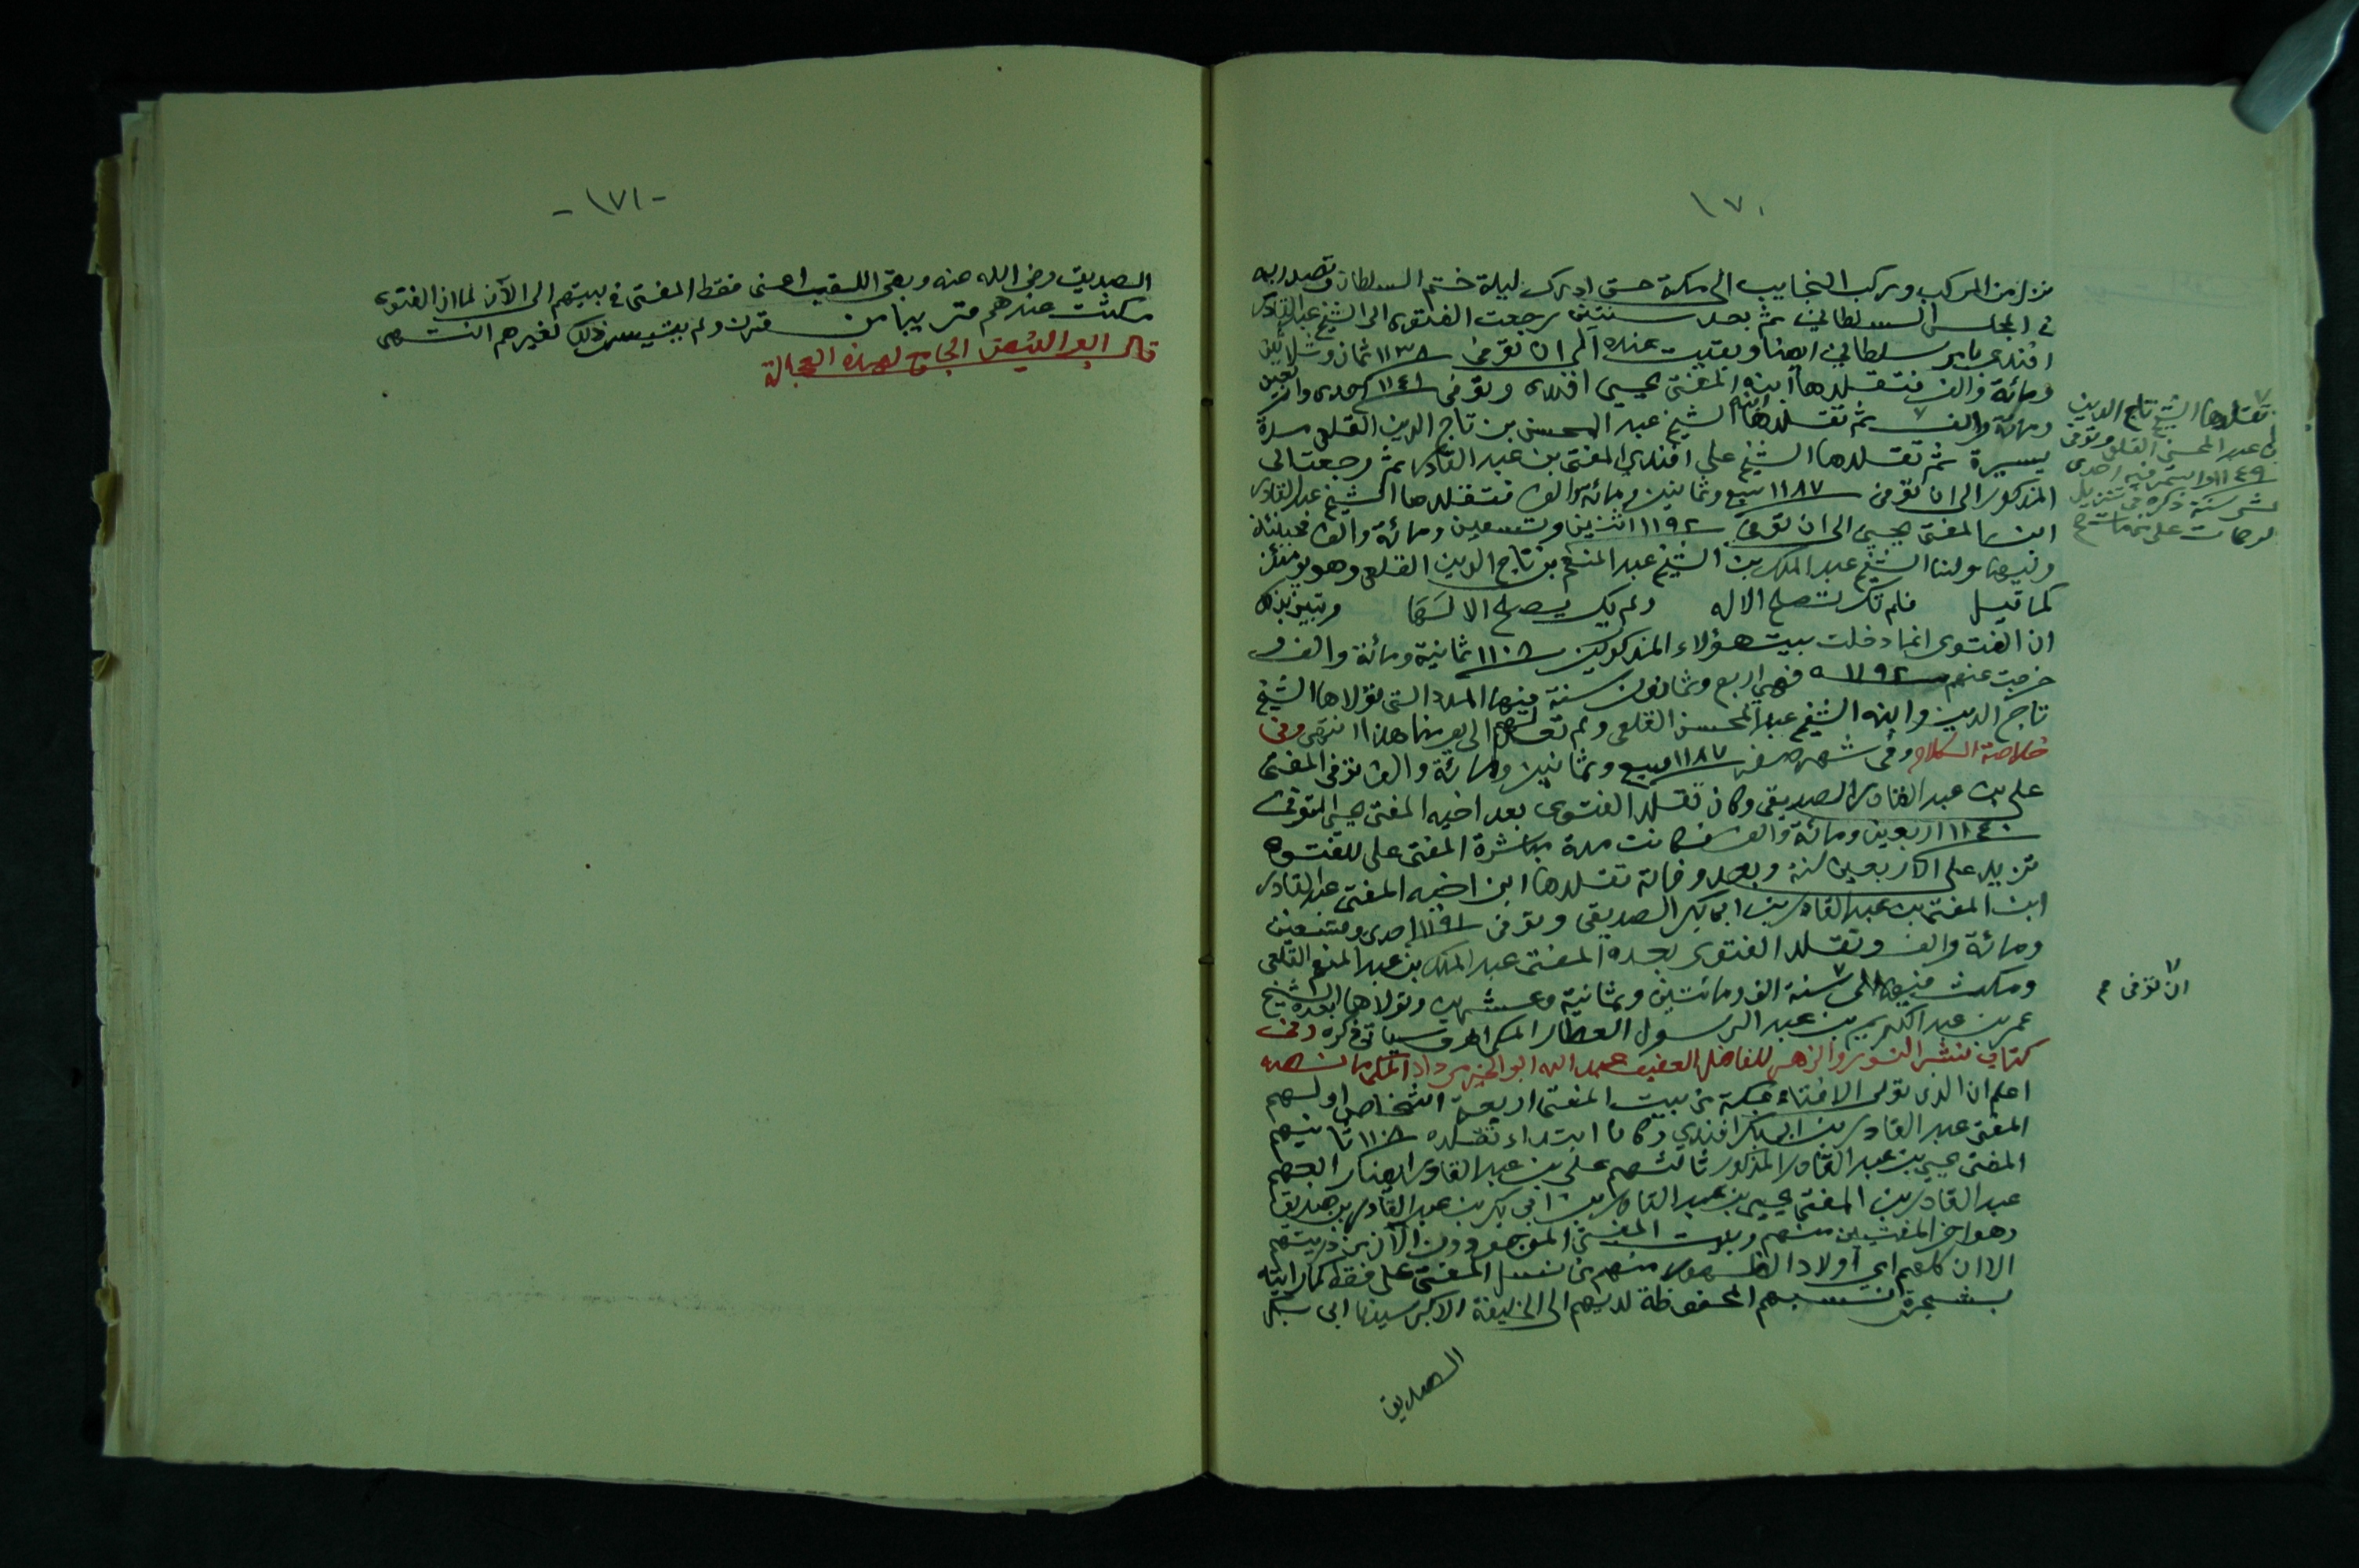 ١٧٠
نزل من المركب وركب النجايب الى مكة حتى ادرك ليلة ختم السلطان وتصدر به
في المجلس السلطاني ثم بعد سنتين رجعت الفتوى الى الشيخ عبد القادر
افندي بامر سلطاني ايضا وبقيت عنده الى ان توفى ١١٣٨ ثمان وثلاثين
ومائة والف فتقلدها ابنه المفتى يحيى افندى وتوفى ١١٤١ احدى واربعين
ومائة والف ثم تقلدها ابنه الشيخ عبد المحسن بن تاج الدين القلعي مدة
يسيرة ثم تقلدها الشيخ علي افندي المفتى بن عبد القادر ثم رجعت الى
المذكور الى ان توفى ١١٨٧ سبع وثمانين ومائة والف فتقلدها الشيخ عبد القادر
ابن المفتى يحيى الى ان توفى ١١٩٢ اثنين وتسعين ومائة والف فحينئذ
وليها مولنا الشيخ عبد الملك بن الشيخ عبد المنعم بن تاج الدين القلعي وهو يومئذ
كما قيل فلم تك تصلح الا له ولم يك يصلح الا لها وتبين بذلك
ان الفتوى انما دخلت بيت هؤلاء المذكورين ١١٠٨ ثمانية ومائة والف و
خرجت عنهم ١١٩٢ فهي اربع وثمانون سنة فيها المدد التى تولاها الشيخ
تاج الدين وابنه الشيخ عبد المحسن القلعي ولم تعد لهم الى يومنا هذا انتهى وفى
خلاصة الكلام وفى شهر صفر ١١٨٧ سبع وثمانين ومائة والف توفى المفتى
على بن عبد القادر الصديقى وكان تقلد الفتوى بعد اخيه المفتى يحيى المتوفى
١١٤٠ اربعين ومائة والف فكانت مدة مباشرة المفتى على للفتوى
تزيد على الاربعين سنة وبعد وفاته تقلدها ابن اخيه المفتى عبد القادر
ابن المفتى بن عبد القادر بن ابى بكر الصديقى وتوفى ١١٩١ احدى وتسعين
ومائة والف وتقلد الفتوى بعده المفتى عبد الملك بن عبد المنعم القلعي
ومكث فيها الى سنة الف ومائتين وثمانية وعشرين وتولاها بعده الشيخ
عمر بن عبد الكريم بن عبد الرسول العطار المكى سياتى ذكره وفى
كتاب نشر النور والزهر للفاضل العفيف عبد الله ابو الخير مرداد المكى ما نصه
اعلم ان الذى تولى الافتاء بمكة من بيت المفتى اربعة اشخاص اولهم
المفتى عبد القادر بن ابى بكر افندي وكان ابتداء تقلده ١١٠٨ ثانيهم
المفتى يحيى بن عبد القادر المذكور ثالثهم على بن عبد القادر ايضا رابعهم
عبد القادر بن المفتى يحيى بن عبد القادر بن ابى بكر بن عبد القادر بن صديق
وهو اخر المفتيين منهم وبيت المفتى الموجودون الآن من ذريتهم
الا ان كلهم اي اولاد الظهور منهم من نسل المفتى على فقط كما رايته
بشجرة نسبهم المحفوظة لديهم الى الخليفة الاكبر سيدنا ابى بكر
الصديق
تقلدها الشيخ تاج الدين
بن عبد المحسن القلعى وتوفى
١١٤٩ واستمر فيه احدى
عشر سنة ذكره فى تنزيل
الرحمات على من مات
ان توفى
- ١٧١ -
الصديق رضى الله عنه وبقى اللقب اعنى فقط المفتى فى بيتهم الى الآن لما ان الفتوى
مكثت عندهم قريبا من قرن ولم يتيسر ذلك لغيرهم انتهى
قال ابو الفيض الجامع لهذه العجالة